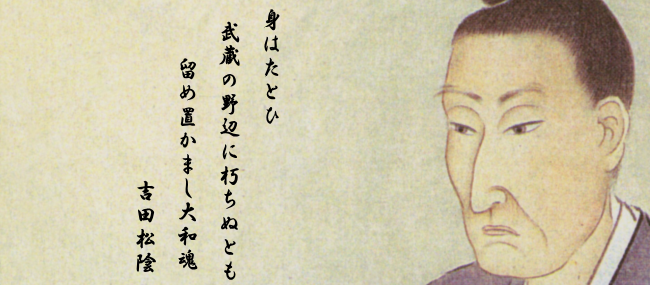 身はたとひ
武蔵の野辺に朽ちぬとも
留め置かまし大和魂
吉田松陰